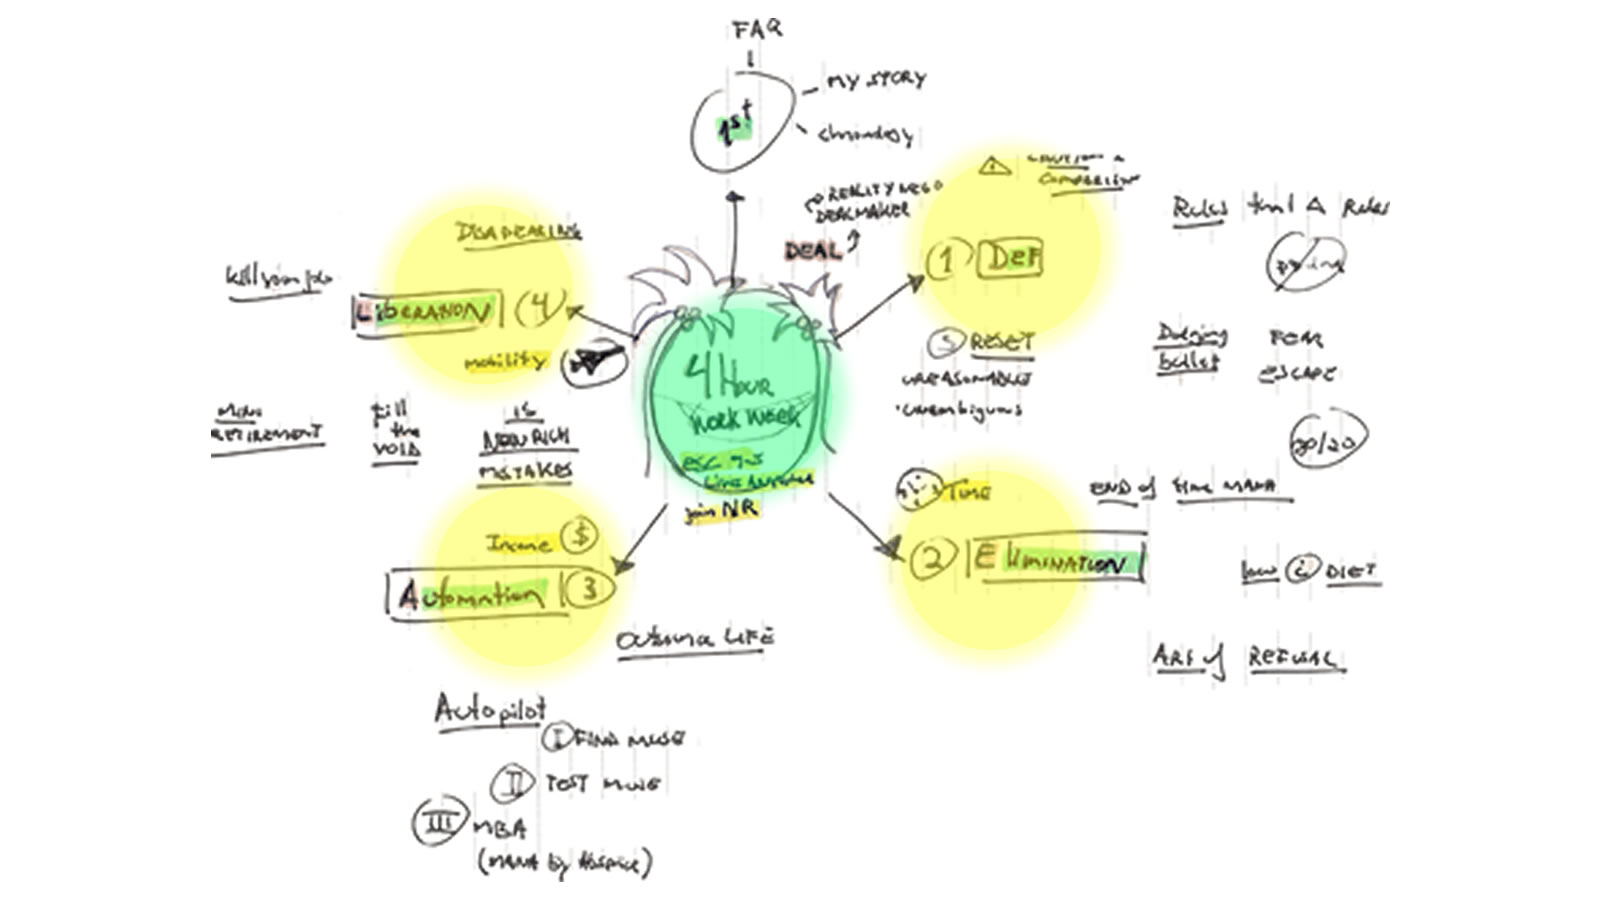 FAQ
1st
MY STORY
chronology
REALITY NEGO
DEALMAKER
DEAL
COMPARISON
1 DEF
Rules that Δ Rules
Dodging
bullet
FEAR
ESCAPE
80/20
S RESET
UNREASONABLE
Unambiguous
4 HOUR
WORK WEEK
ESC 9-5
join NR
Time
2 ELIMINATION
END of time MANA
low i DIET
ART of REFUSAL
DISAPPEARING
kill your job
LIBERATION 4
mobility
MINI
RETIREMENT
fill
the
VOID
13
NEW RICH
MISTAKES
Income $
Automation 3
OUTSOURCE LIFE
Autopilot
I FIND MUSE
II TEST MUSE
III MBA